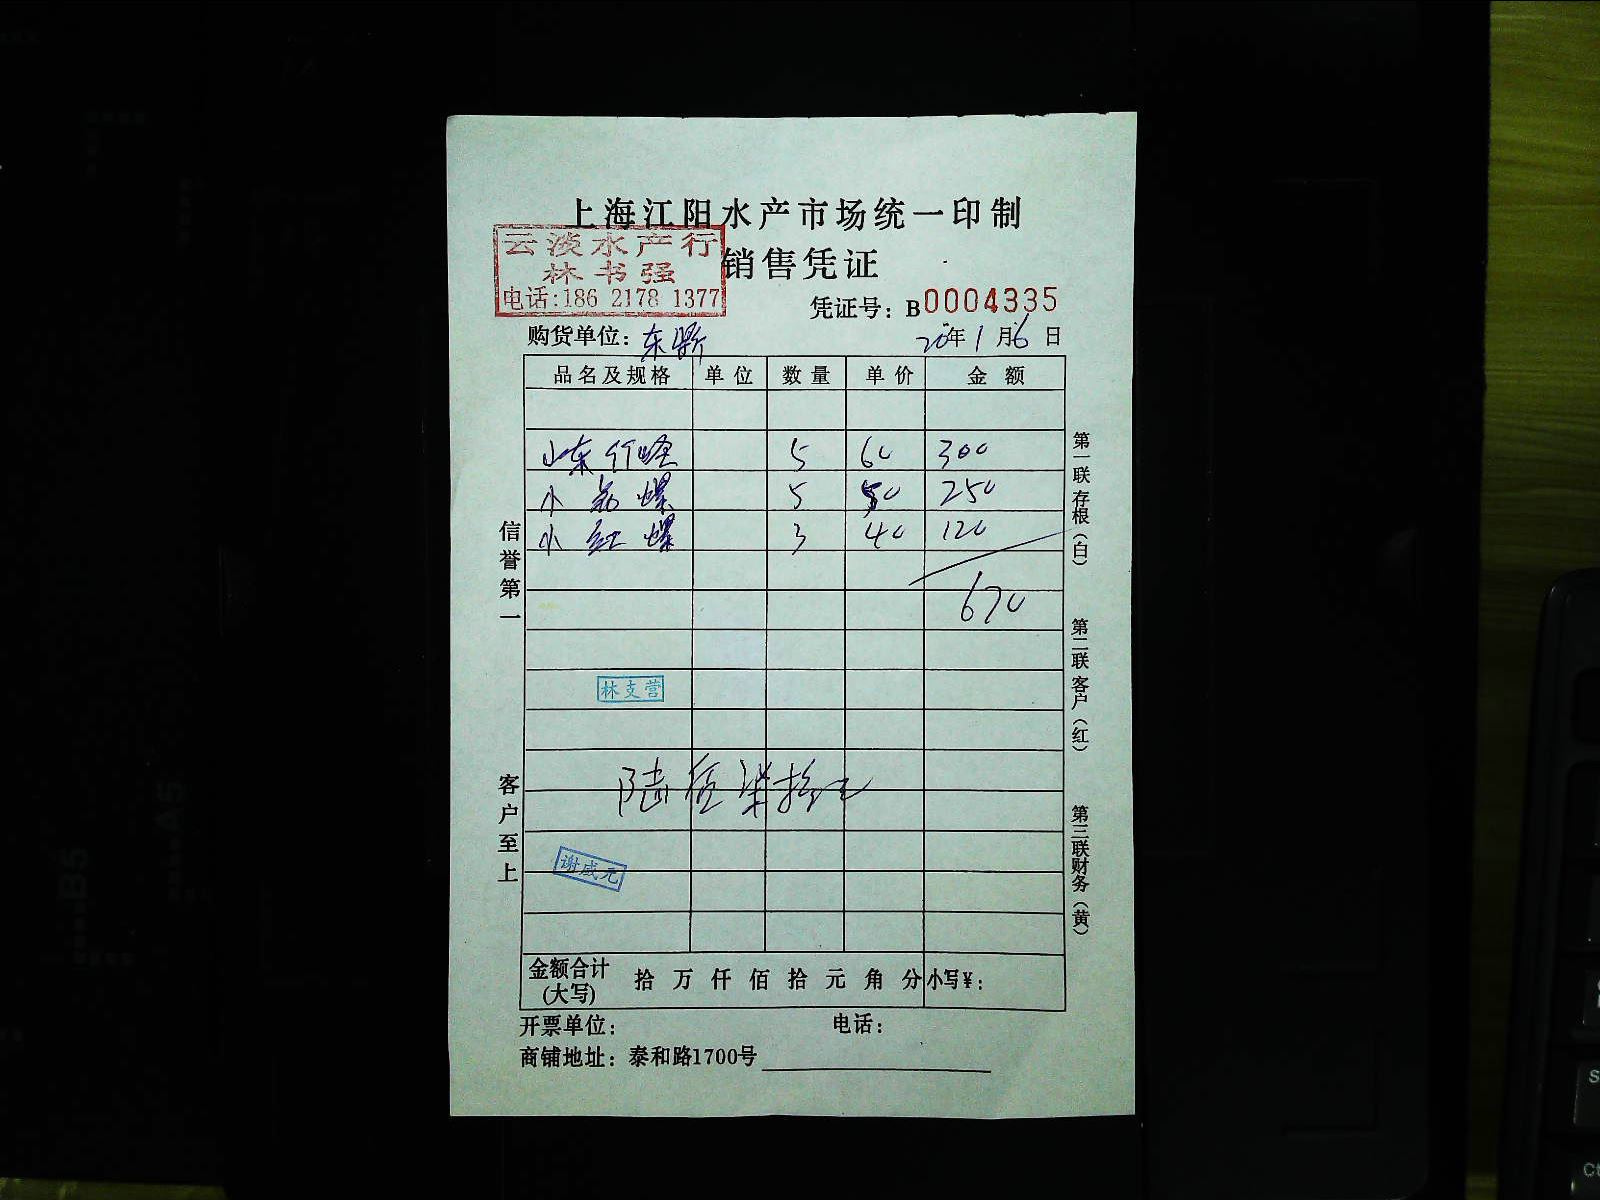 上海江阳水产市场统一印制
销售凭证
云淡水产行
林书强
电话:186 2178 1377
凭证号：B0004335
购货单位：东
20年1月6日
品名及规格 单位 数量 单价 金额
山东竹蛏 5 60 300
小 螺 5 50 250
小红螺 3 40 120
670
林支营
陆佰柒拾元
谢成元
金额合计(大写) 拾 万 仟 佰 拾 元 角 分 小写¥：
开票单位： 电话：
商铺地址：泰和路1700号
信誉第一
客户至上
第一联存根（白）
第二联客户（红）
第三联财务（黄）
B5
A5